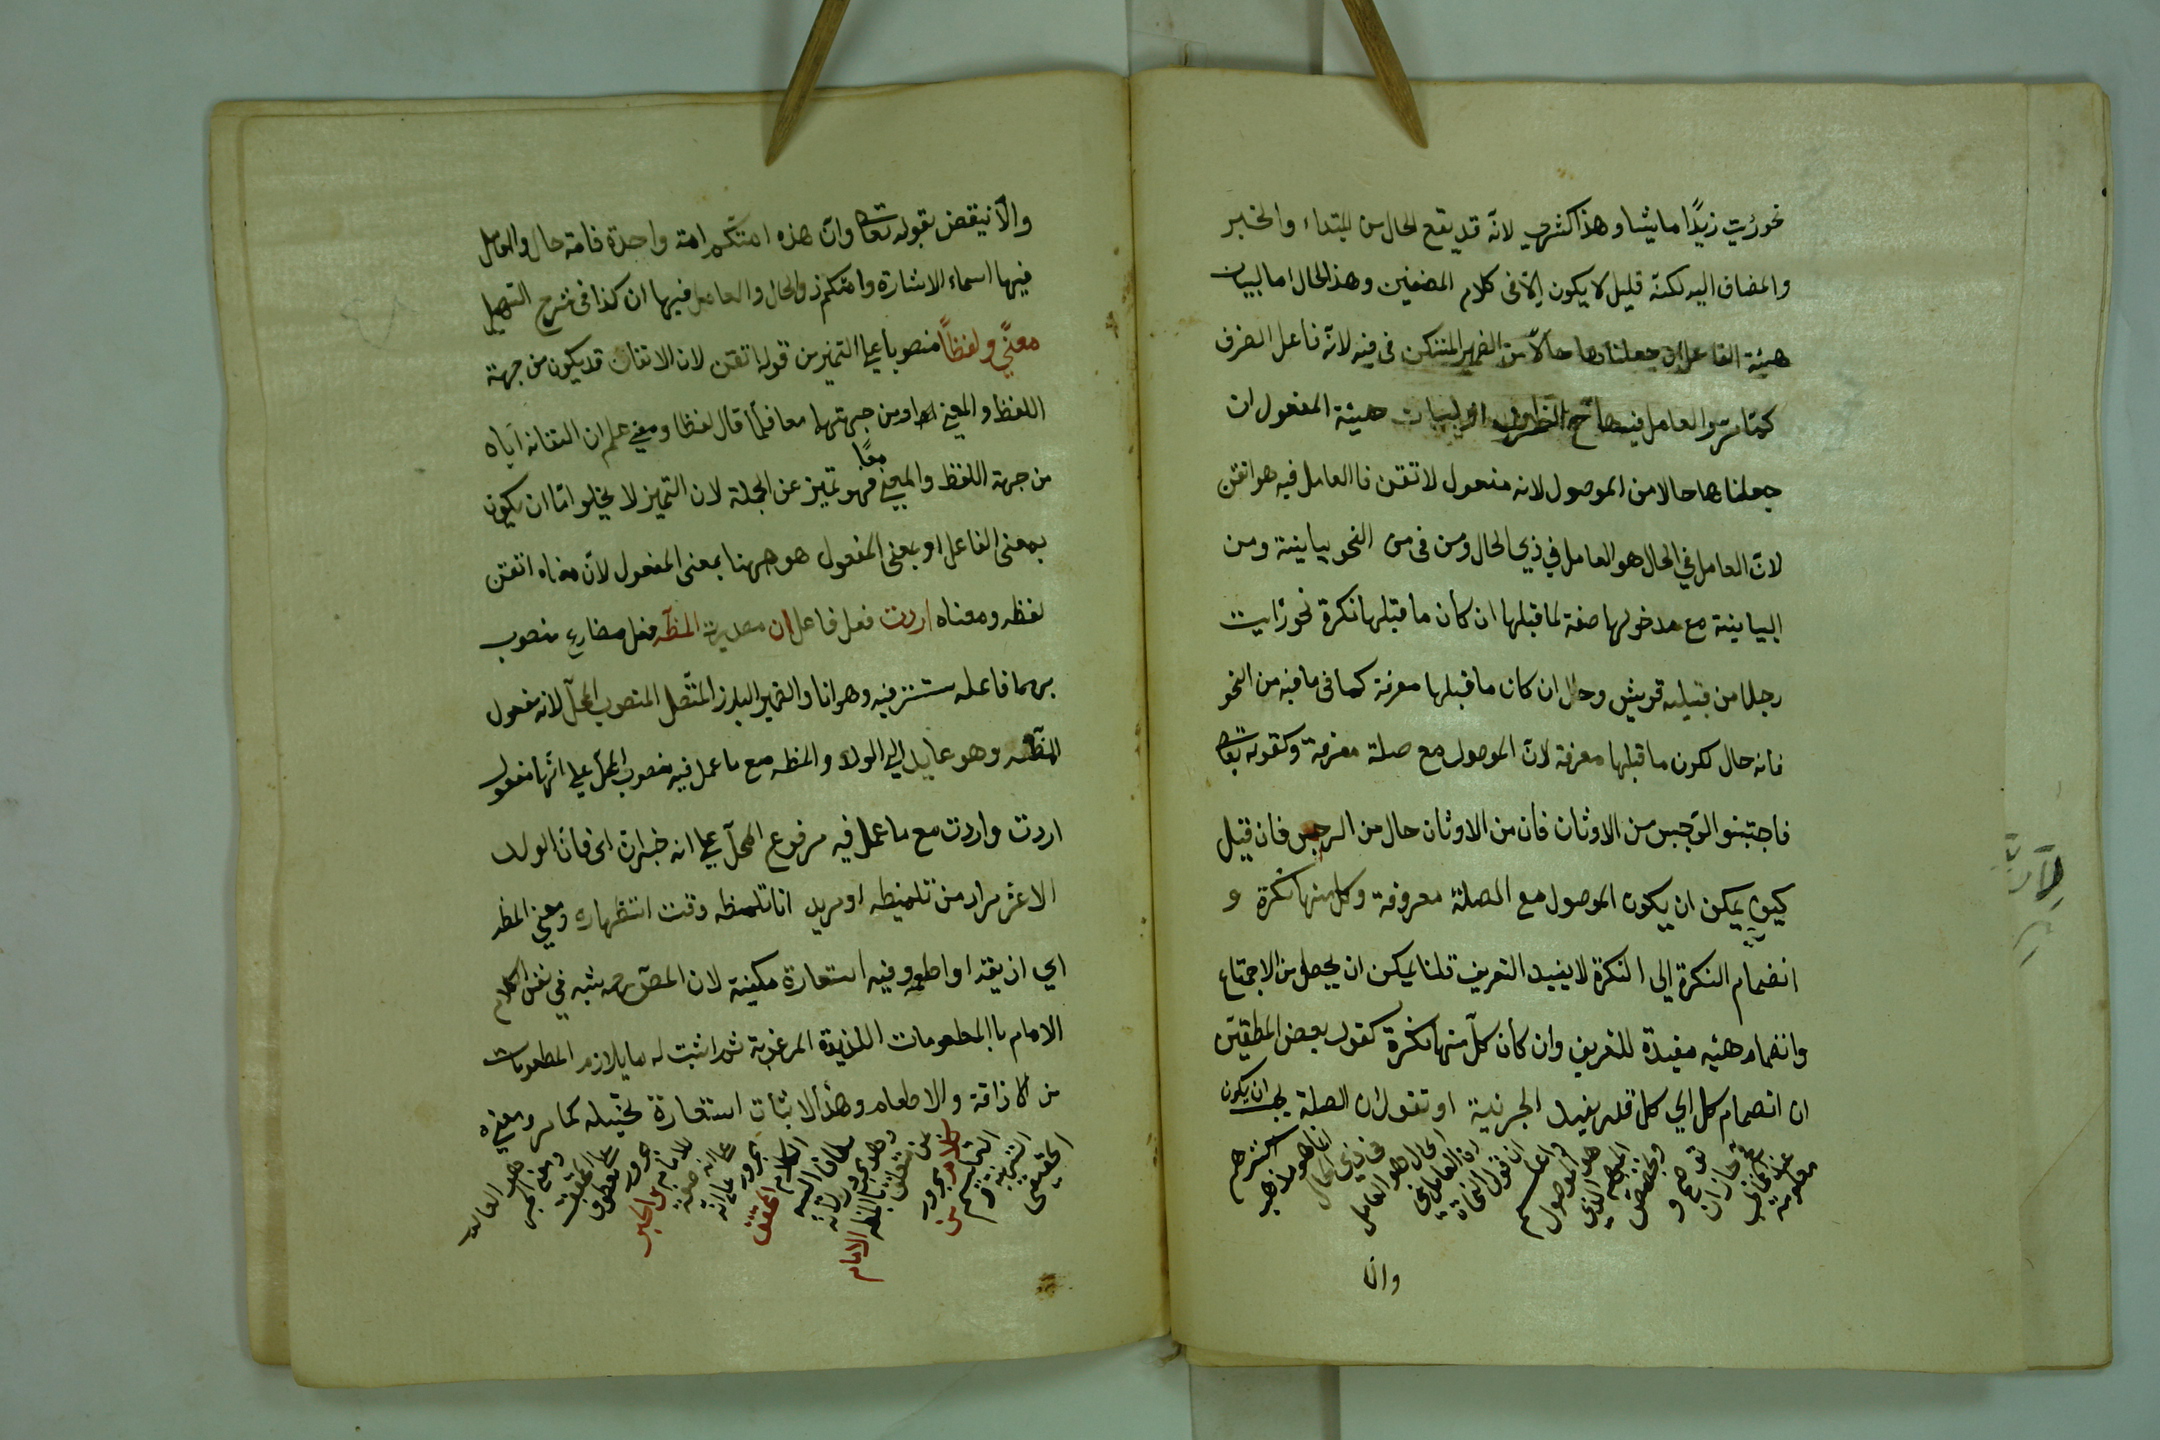 نحو رئيت زيدًا ماشيا وهذا كثير لانّه قد يقع الحال من المبتداء والخبر
والمضاف اليه لكنّه قليل لا يكون الّا فى كلام المصنفين وهذا الحال اما لبيان
هيئة الفاعل ان جعلناها حالا من الضمير المستكن فى فيه لانّه فاعل الظرف
كمّا مرّ والعامل فيها ح الظرف او لبيان هيئة المفعول ان
جعلناها حالا من الموصول لانه مفعول لاتقن فا العامل فيه هو اتقن
لانّ العامل في الحال هو العامل في ذي الحال ومن فى من النحو بيانية ومن
البيانية مع مدخولها صفة لما قبلها ان كان ما قبلها نكرة نحو رئايت
رجلا من قبيلة قريش وحال ان كان ما قبلها معرفة كما فى ما فيه من النحو
فانه حال لكون ما قبلها معرفة لانّ الموصول مع صلة معرفة وكقوله تعا
فاجتبنو الرّجس من الاوثان فان من الاوثان حال من الرجس فان قيل
كيف يمكن ان يكون الموصول مع الصلة معروفة وكل منها نكرة و
انضمام النكرة الى النكرة لا يفيد التعريف قلنا يمكن ان يحصل من الاجتماع
وانضمام هيئه مفيدة للتعريف وان كان كلّ منها نكرة كقول بعض المنطقيّن
ان انضمام كل الي كل قد يفيد الجزئية او تقول ان الصلة يجب ان يكون
معلومة
عند المخاطب
واعلم
ان قول النحاة
ان العامل في
الحال هو العامل
فى ذي الحال
انما هو مذهب
اكثرهم
وان
والّا نيقض بقوله تعا وانّ هذه امّتكم امة واحدة فامة حال والعامل
فيها اسماء الاشارة وامّتكم ذو الحال والعامل فيها ان كذا فى شرح التسهيل
معنًي ولفظاً منصوبا علي التميز من قوله اتقن لان الاتقان قد يكون من جهة
اللفظ والمعني او من جهتهما معا فلمّا قال لفظا ومعني علم ان اتقانه ايّاه
من جهة اللفظ والمعني معًا فهو تميز عن الجملة لان التميز لا يخلو امّا ان يكون
بمعنى الفاعل او بمعنى المفعول هو ههنا بمعنى المفعول لانّ معناه اتقن
لفظه ومعناه اردت فعل فاعل ان مصدرية المظّه فعل مضارع منصوب
بها فاعله مستتر فيه وهو انا والضمير البارز المتّصل المنصوب المحلّ لانه مفعول
المظّه وهو عايد الي الولد والمظه مع ما عمل فيه منصوب المحلّ علي انّها مفعول
اردت واردت مع ما عمل فيه مرفوع المحلّ علي انه خبر ان اى فانّ الولد
الاعز مراد من تلميظه او مريد انا تلمظه وقت استظهاره ومعني المظه
اي اذيقه او اطعمه وفيه استعارة مكنية لان المصّ رحمه شبه في نفس الكلام
الامام با المطعومات اللذيذة المرغوبة ثم اثبت له ما يلازم المطعومات
من الاذاقة والاطعام وهذا الاثبات استعارة تخييله كما مر ومعني
الحقيقي
التشبيه
من
كلام مجرور
من متعلق بالمظه
وهو مجرور بانه
مضاف اليه
الامام
الكلام
المتقن
مجرور علي انّه
علي انه صفة
للامام
والحبر
مجرور
معطوف
علي المتقن
ومعني الحبر
هو العالم